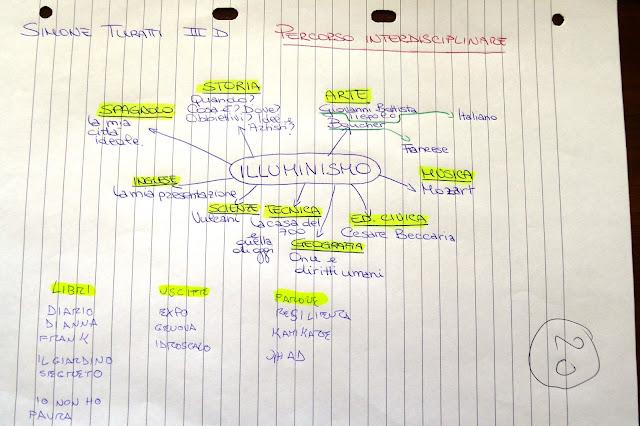 SIMONE TURATTI III D
PERCORSO INTERDISCIPLINARE
STORIA
Quando?
Cosa è? Dove?
Obbiettivi? Idee?
Azioni?
ARTE
Giovanni Battista
Tiepolo
Boucher
Italiano
Francese
SPAGNOLO
La mia
città
ideale.
ILLUMINISMO
MUSICA
Mozart
INGLESE
La mia presentazione
SCIENZE
Vulcani
TECNICA
La casa del
700
e
quella
di oggi
GEOGRAFIA
Onu e
diritti umani
ED. CIVICA
Cesare Beccaria
LIBRI
DIARIO
DI ANNA
FRANK
IL GIARDINO
SEGRETO
IO NON HO
PAURA
USCITE
EXPO
GENOVA
IDROSCALO
PAROLE
RESILIENZA
KAMIKAZE
JIHAD
20